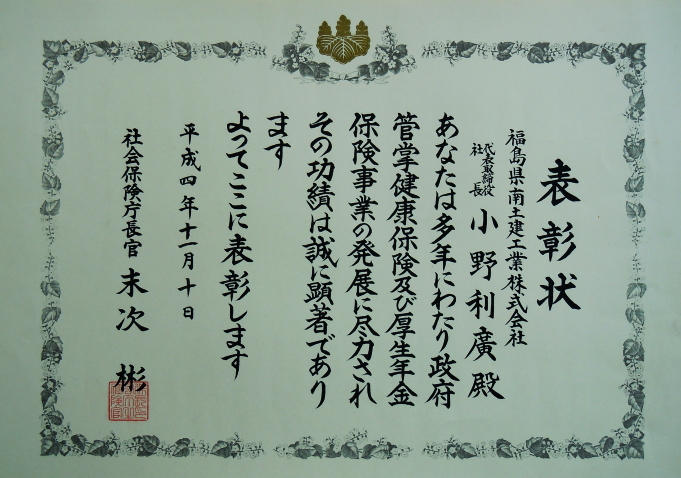 表彰状
福島県南土建工業株式会社
代表取締役
社長 小野利廣殿
あなたは多年にわたり政府
管掌健康保険及び厚生年金
保険事業の発展に尽力され
その功績は誠に顕著であり
ます
よってここに表彰します
平成四年十一月十日
社会保険庁長官 末次 彬